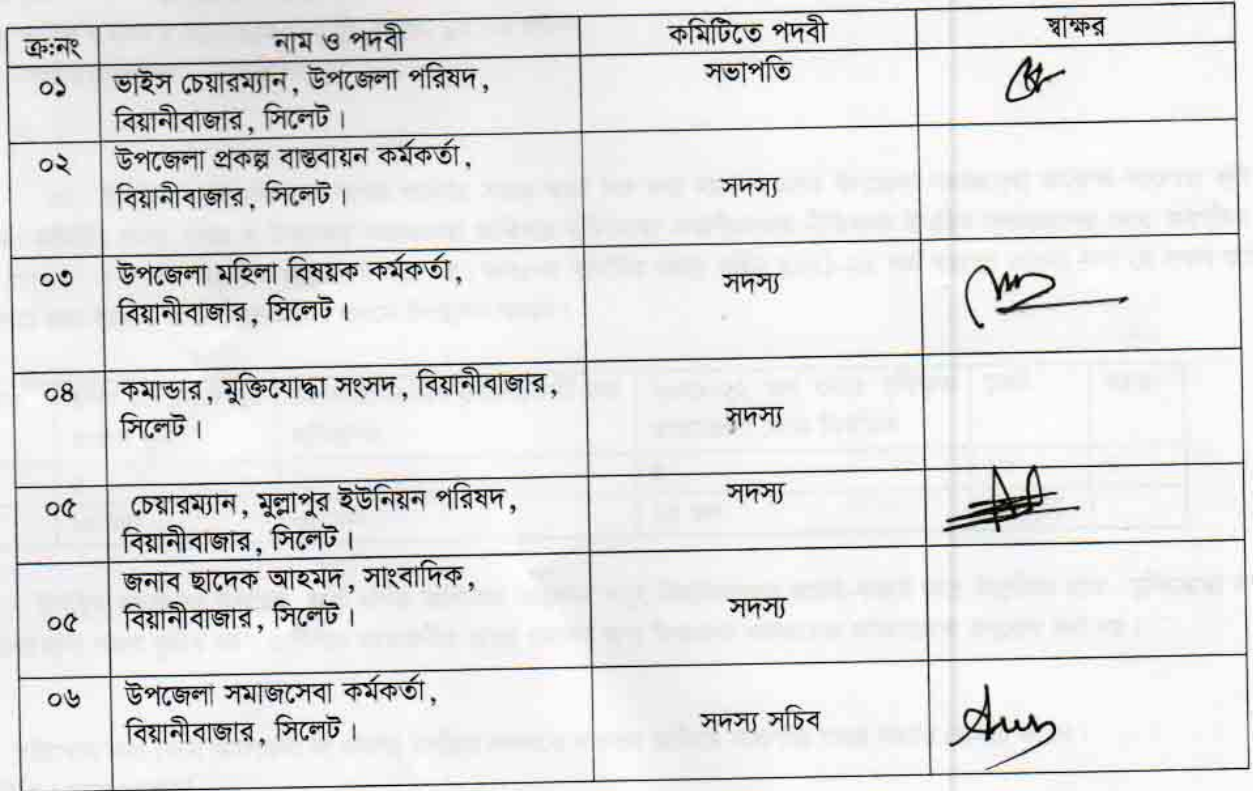 ক্র:নং নাম ও পদবী কমিটিতে পদবী স্বাক্ষর
০১ ভাইস চেয়ারম্যান, উপজেলা পরিষদ, সভাপতি
বিয়ানীবাজার, সিলেট।
০২ উপজেলা প্রকল্প বাস্তবায়ন কর্মকর্তা,
বিয়ানীবাজার, সিলেট। সদস্য
০৩ উপজেলা মহিলা বিষয়ক কর্মকর্তা, সদস্য
বিয়ানীবাজার, সিলেট।
০৪ কমান্ডার, মুক্তিযোদ্ধা সংসদ, বিয়ানীবাজার,
সিলেট। সদস্য
০৫ চেয়ারম্যান, মুল্লাপুর ইউনিয়ন পরিষদ, সদস্য
বিয়ানীবাজার, সিলেট।
জনাব ছাদেক আহমদ, সাংবাদিক,
০৫ বিয়ানীবাজার, সিলেট। সদস্য
০৬ উপজেলা সমাজসেবা কর্মকর্তা,
বিয়ানীবাজার, সিলেট। সদস্য সচিব